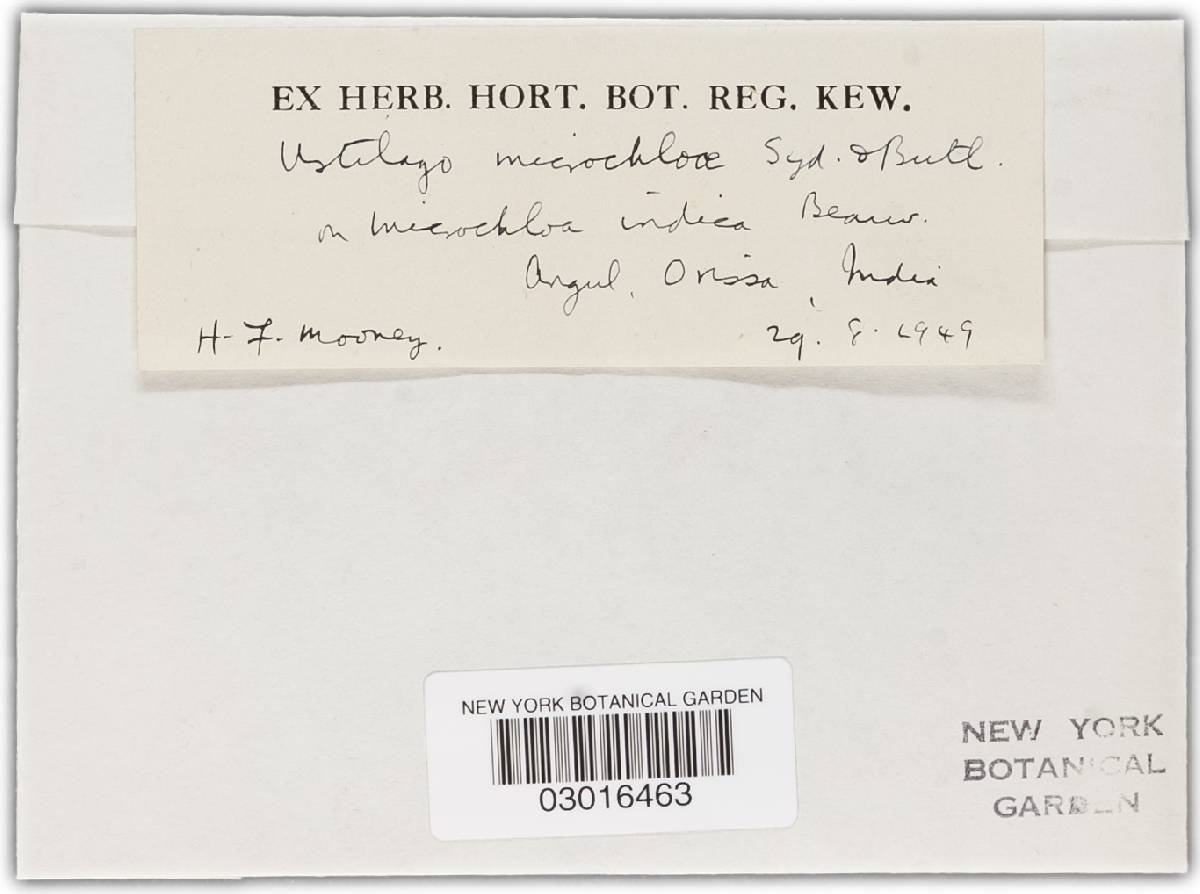 EX HERB. HORT. BOT. REG. KEW.
Ustilago microchloae Syd. & Butl.
on microchloa indica Beauv.
Angul, Orissa, India
H. F. Mooney. 29. 8. 1949
NEW YORK BOTANICAL GARDEN
03016463
NEW YORK
BOTANICAL
GARDEN